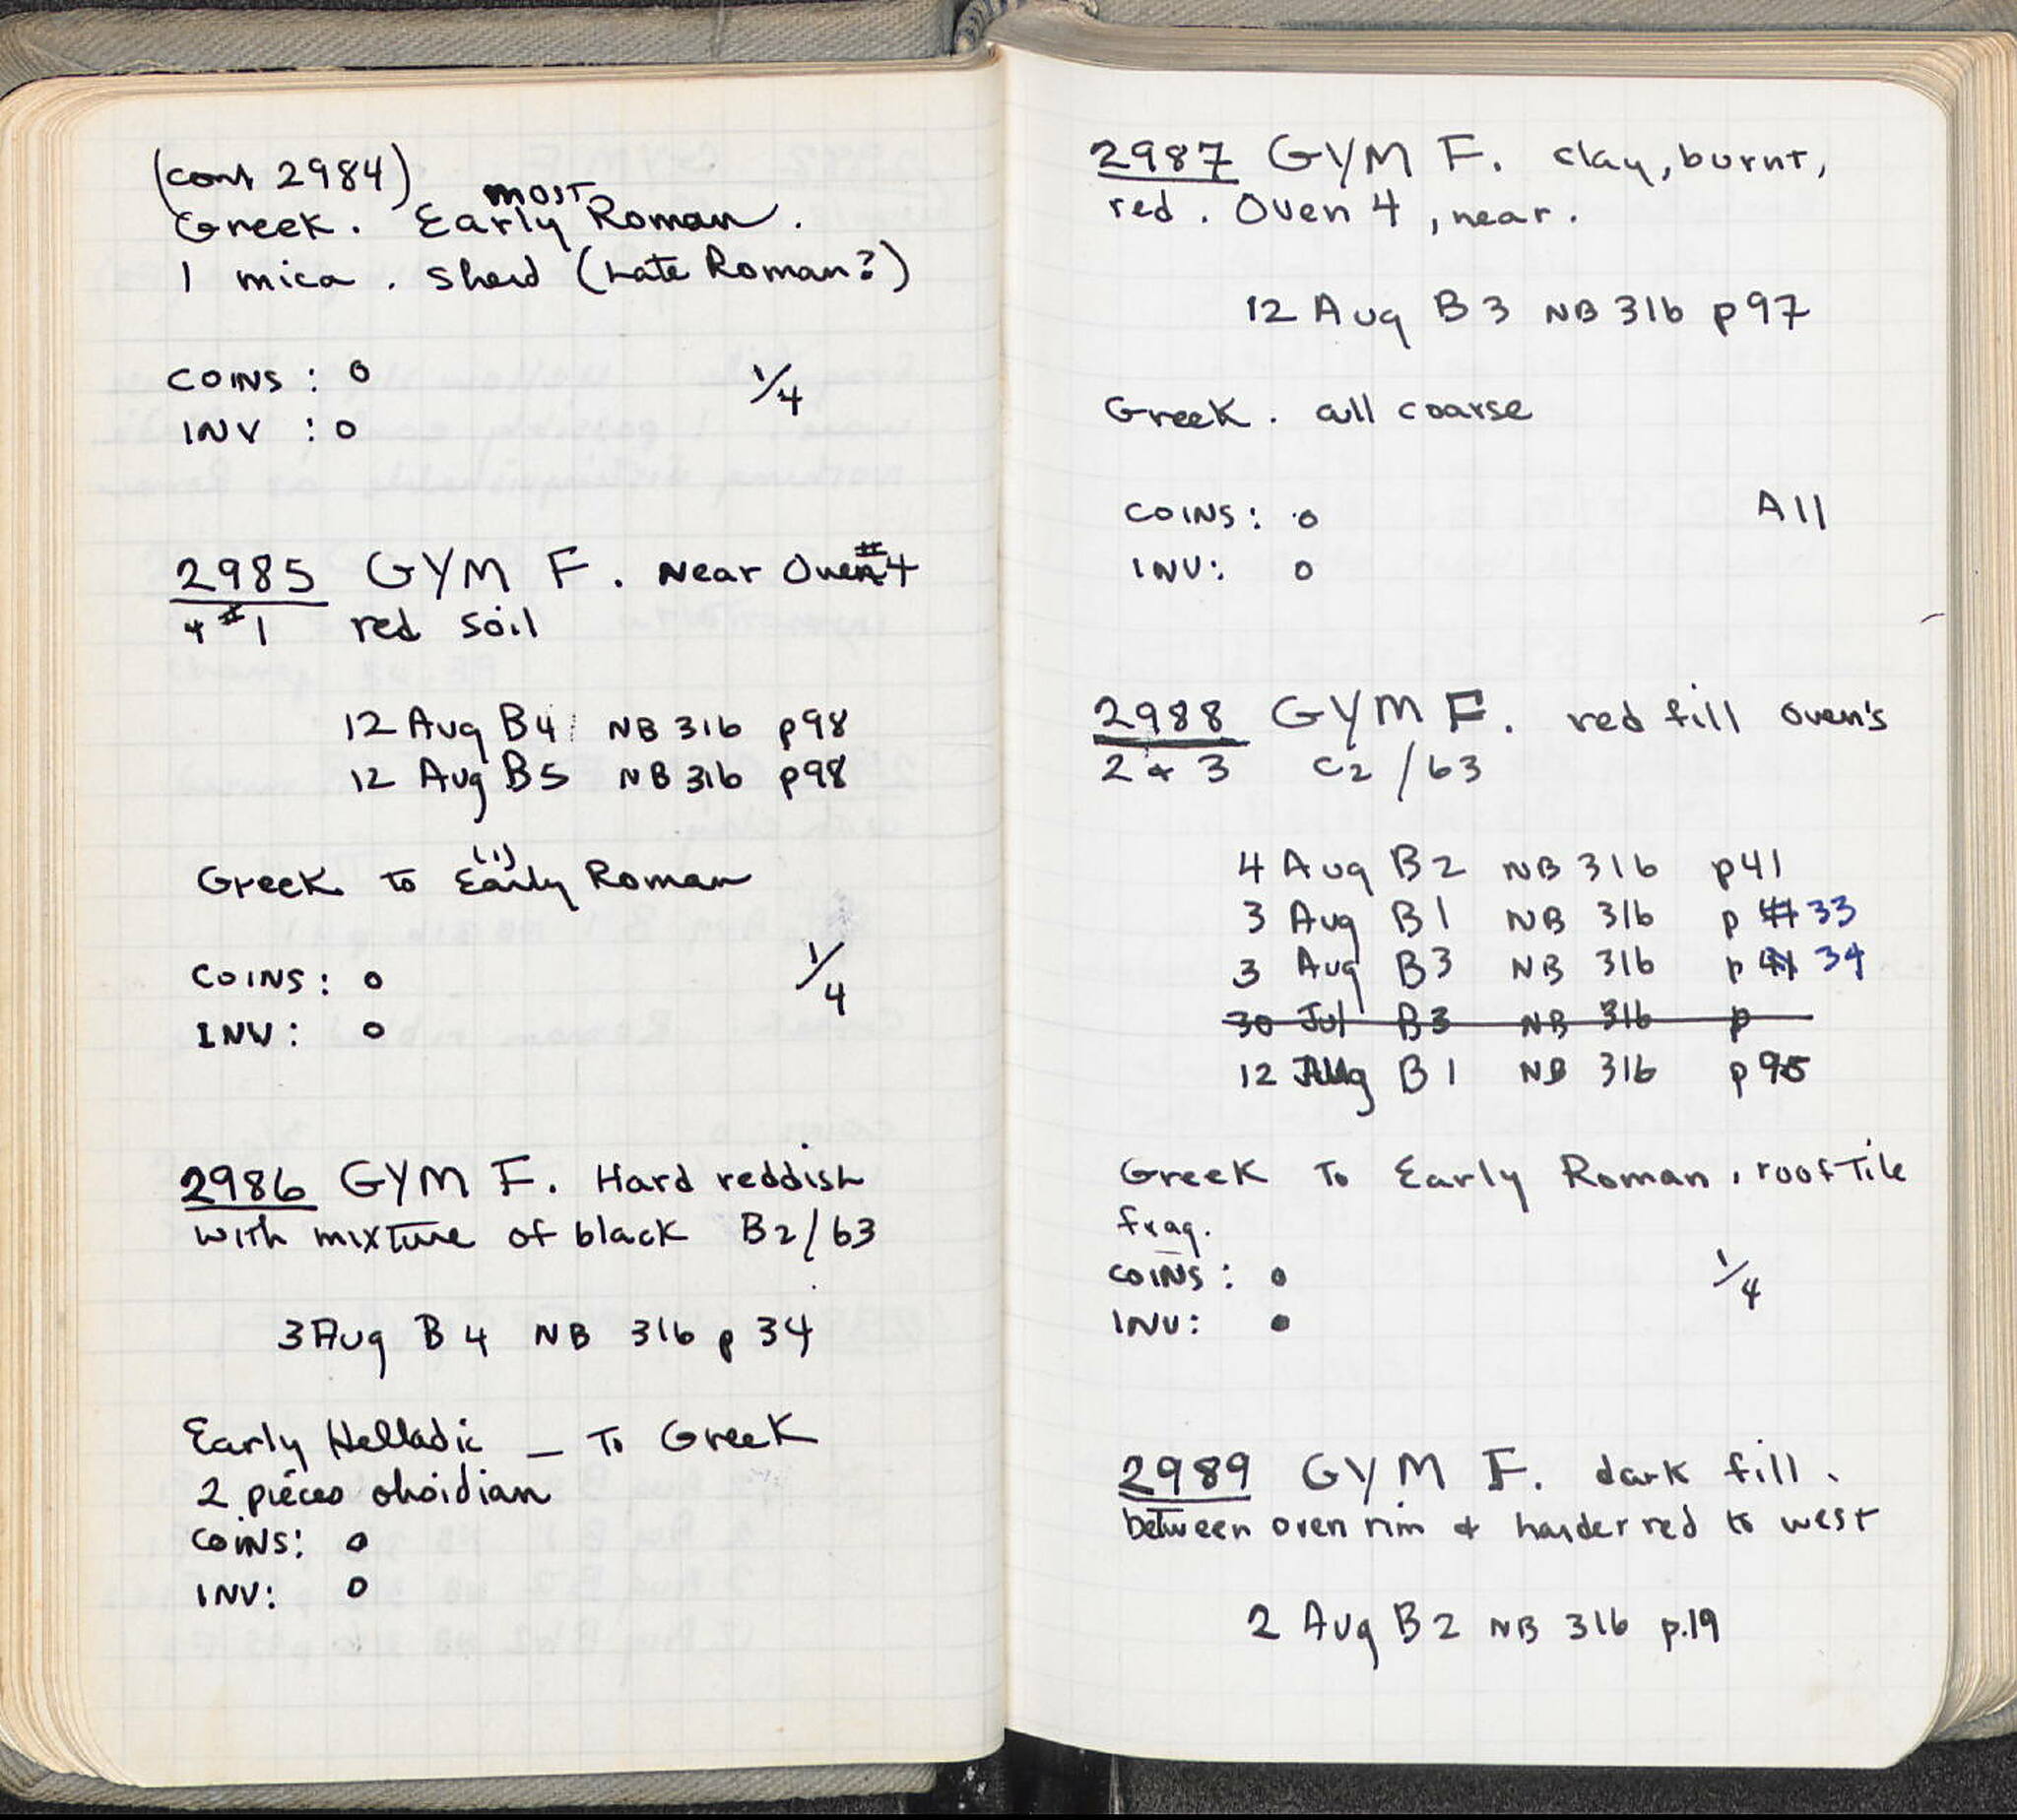 (cont 2984)
most
Greek. Early Roman.
1 mica. sherd (Late Roman?)
COINS: 0
1/4
INV: 0
2985 GYM F. Near Oven #4
+ #1 red soil
12 Aug B4 NB 316 p98
12 Aug B5 NB 316 p98
(1)
Greek to Early Roman
COINS: 0
1/4
INV: 0
2986 GYM F. Hard reddish
with mixture of black B2/63
3 Aug B4 NB 316 p 34
Early Helladic — To Greek
2 pieces obsidian
COINS: 0
INV: 0
2987 GYM F. clay, burnt,
red. Oven 4, near.
12 Aug B3 NB 316 p97
Greek. all coarse
COINS: 0
All
INV: 0
2988 GYM F. red fill oven's
2 + 3 C2/63
4 Aug B2 NB 316 p41
3 Aug B1 NB 316 p 41 33
3 Aug B3 NB 316 p 41 34
30 Jul B3 NB 316 p
12 Aug B1 NB 316 p95
Greek To Early Roman, roof Tile
frag.
COINS: 0
1/4
INV: 0
2989 GYM F. dark fill.
between oven rim + harder red to west
2 Aug B2 NB 316 p.19